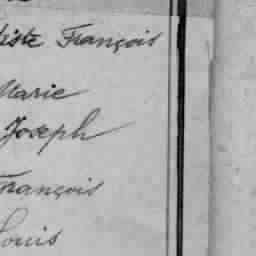 tiste François
Marie
Joseph
François
Louis